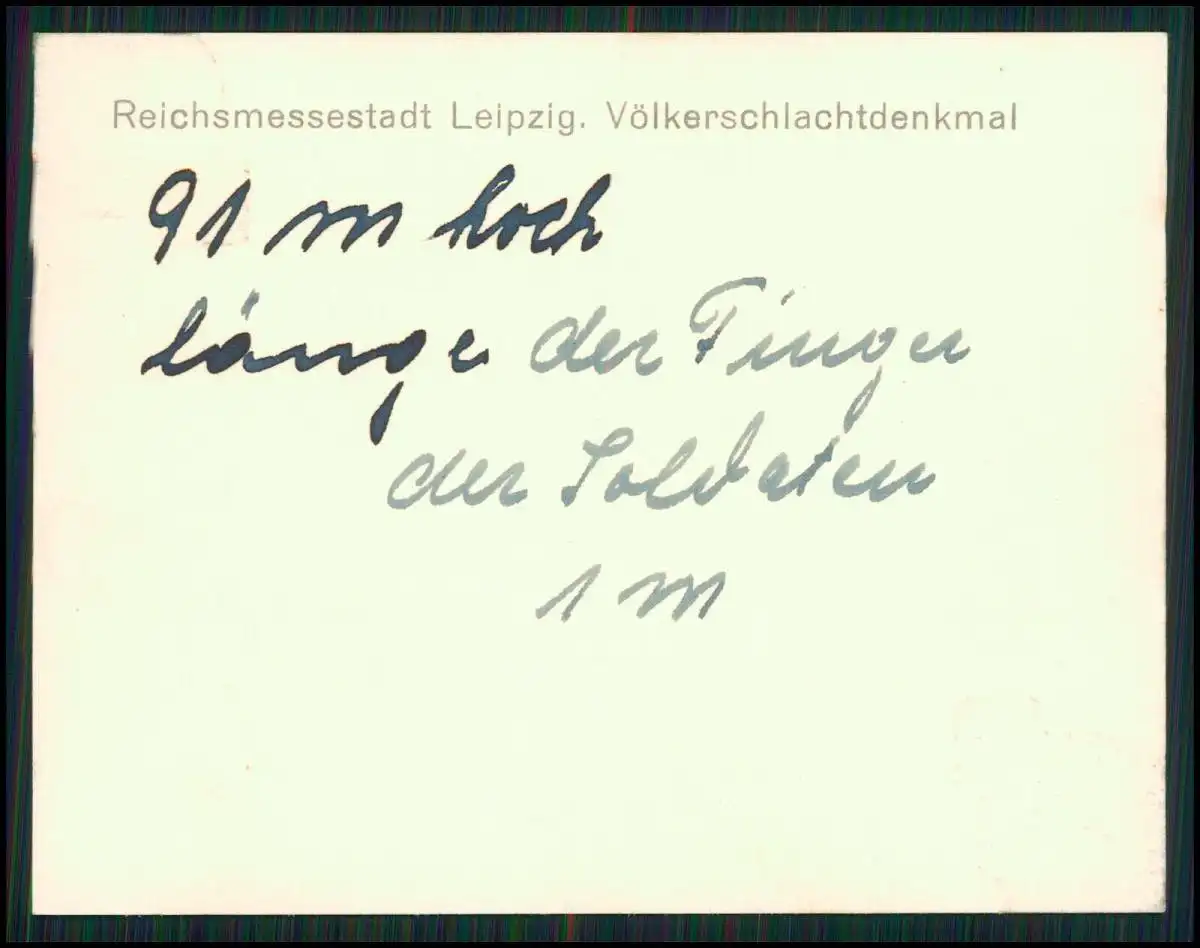 Reichsmessestadt Leipzig. Völkerschlachtdenkmal
91 m hoch
länge der Finger
der Soldaten
1 m